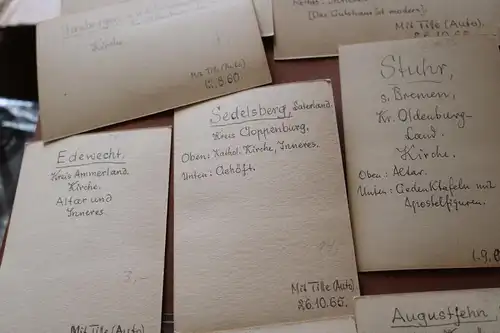 Kirche
Mit Tille (Auto)
[Das Gutshaus ist modern].
Mit Tille (Auto)
26.10.65
Stuhr,
s. Bremen,
Kr. Oldenburg-
Land.
Kirche.
Oben: Altar.
Unten: Gedenktafeln mit
Apostelfiguren.
1.9.6
Sedelsberg, Saterland.
Kreis Cloppenburg.
Oben: Kathol. Kirche, Inneres.
Unten: Gehöft.
Mit Tille (Auto).
26.10.65.
Edewecht.
Kreis Ammerland.
Kirche.
Altar und
Inneres.
3,-
Mit Tille (Auto)
Augustfehn,